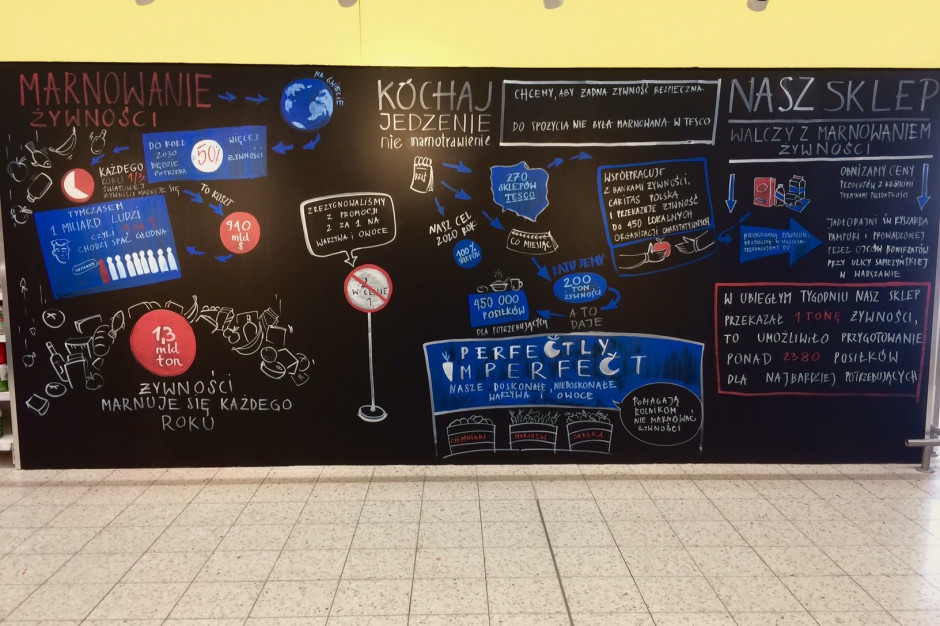 MARNOWANIE
ŻYWNOŚCI
NA ŚWIECIE
DO ROKU
2030
BĘDZIE
POTRZEBA
50%
WIĘCEJ
ŻYWNOŚCI
KAŻDEGO
ROKU 1/3
ŚWIATOWEJ
ŻYWNOŚCI MARNUJE SIĘ
TO KOSZT
940 mld
$
TYMCZASEM
1 MILIARD LUDZI
CZYLI
CHODZI SPAĆ GŁODNA
1,3
mld
ton
ŻYWNOŚCI
MARNUJE SIĘ KAŻDEGO
ROKU
ZREZYGNOWALIŚMY
Z PROMOCJI
2 ZA 1 NA
WARZYWA I OWOCE
2
W CENIE
1
KOCHAJ
JEDZENIE
nie marnotrawienie
CHCEMY, ABY ŻADNA ŻYWNOŚĆ BEZPIECZNA
DO SPOŻYCIA NIE BYŁA MARNOWANA W TESCO
NASZ CEL
2020 ROK
100%
SKLEPÓW
270
SKLEPÓW
TESCO
CO MIESIĄC
RATUJEMY
200
TON
ŻYWNOŚCI
A TO
DAJE
450 000
POSIŁKÓW
DLA POTRZEBUJĄCYCH
WSPÓŁPRACUJE
Z BANKAMI ŻYWNOŚCI,
CARITAS POLSKA
I PRZEKAZUJE ŻYWNOŚĆ
DO 450 LOKALNYCH
ORGANIZACJI CHARYTATYWNYCH
PERFECTLY
IMPERFECT
NASZE DOSKONAŁE, NIEDOSKONAŁE
WARZYWA I OWOCE
ZIEMNIAKI
MARCHEW
JABŁKA
POMAGAJĄ
ROLNIKOM
NIE MARNOWAĆ
ŻYWNOŚCI
NASZ SKLEP
WALCZY Z MARNOWANIEM
ŻYWNOŚCI
OBNIŻAMY CENY
PRODUKTÓW Z KRÓTKIM
TERMINEM PRZYDATNOŚCI
JADŁODAJNI ŚW. RYSZARDA
PAMPURI PROWADZONEJ
PRZEZ OJCÓW BONIFRATÓW
PRZY ULICY SAPIEŻYŃSKIEJ
W WARSZAWIE
W UBIEGŁYM TYGODNIU NASZ SKLEP
PRZEKAZAŁ 1 TONĘ ŻYWNOŚCI,
TO UMOŻLIWIŁO PRZYGOTOWANIE
PONAD 2380 POSIŁKÓW
DLA NAJBARDZIEJ POTRZEBUJĄCYCH